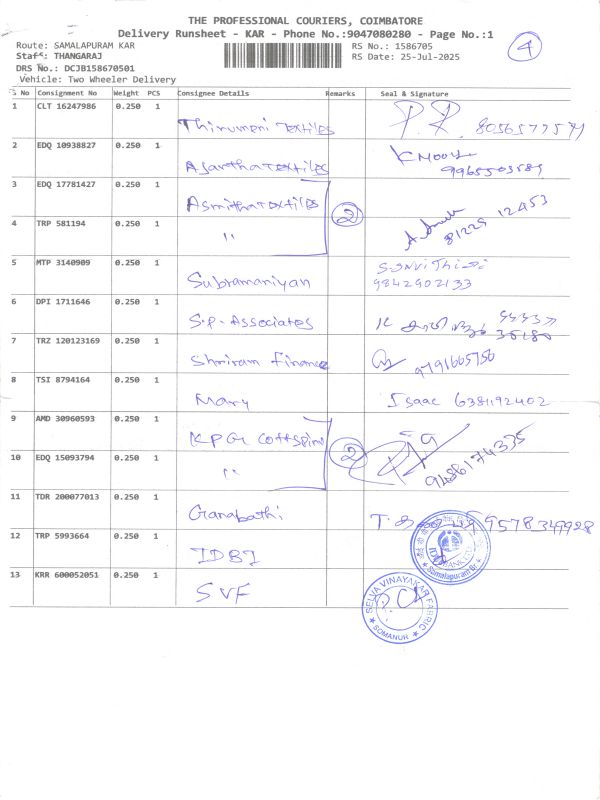 THE PROFESSIONAL COURIERS, COIMBATORE
Delivery Runsheet - KAR - Phone No.:9047080280 - Page No.:1
Route: SAMALAPURAM KAR RS No.: 1586705
Staff: THANGARAJ RS Date: 25-Jul-2025
4
DRS No.: DCJB158670501
Vehicle: Two Wheeler Delivery
S No Consignment No Weight PCS Consignee Details Remarks Seal & Signature
1 CLT 16247986 0.250 1 Thirumeni Textiles
2 EDQ 10938827 0.250 1 Textiles 9965503589
3 EDQ 17781427 0.250 1 Asmitha Textiles 2
4 TRP 581194 0.250 1 " 81229 12453
5 MTP 3140909 0.250 1 Subramaniyan
9842902133
6 DPI 1711646 0.250 1 S.P. Associates
7 TRZ 120123169 0.250 1 Shriram Finance 9791665756
8 TSI 8794164 0.250 1 Mary Isaac 6381192402
9 AMD 30960593 0.250 1 KPG Cottspin 2
10 EDQ 15093794 0.250 1 " 9486174335
11 TDR 200077013 0.250 1 Ganabathi 9578349928
12 TRP 5993664 0.250 1 IDBI
Samalapuram Br.
13 KRR 600052051 0.250 1 SVF
SELVA VINAYAKAR FABRIC
SOMANUR